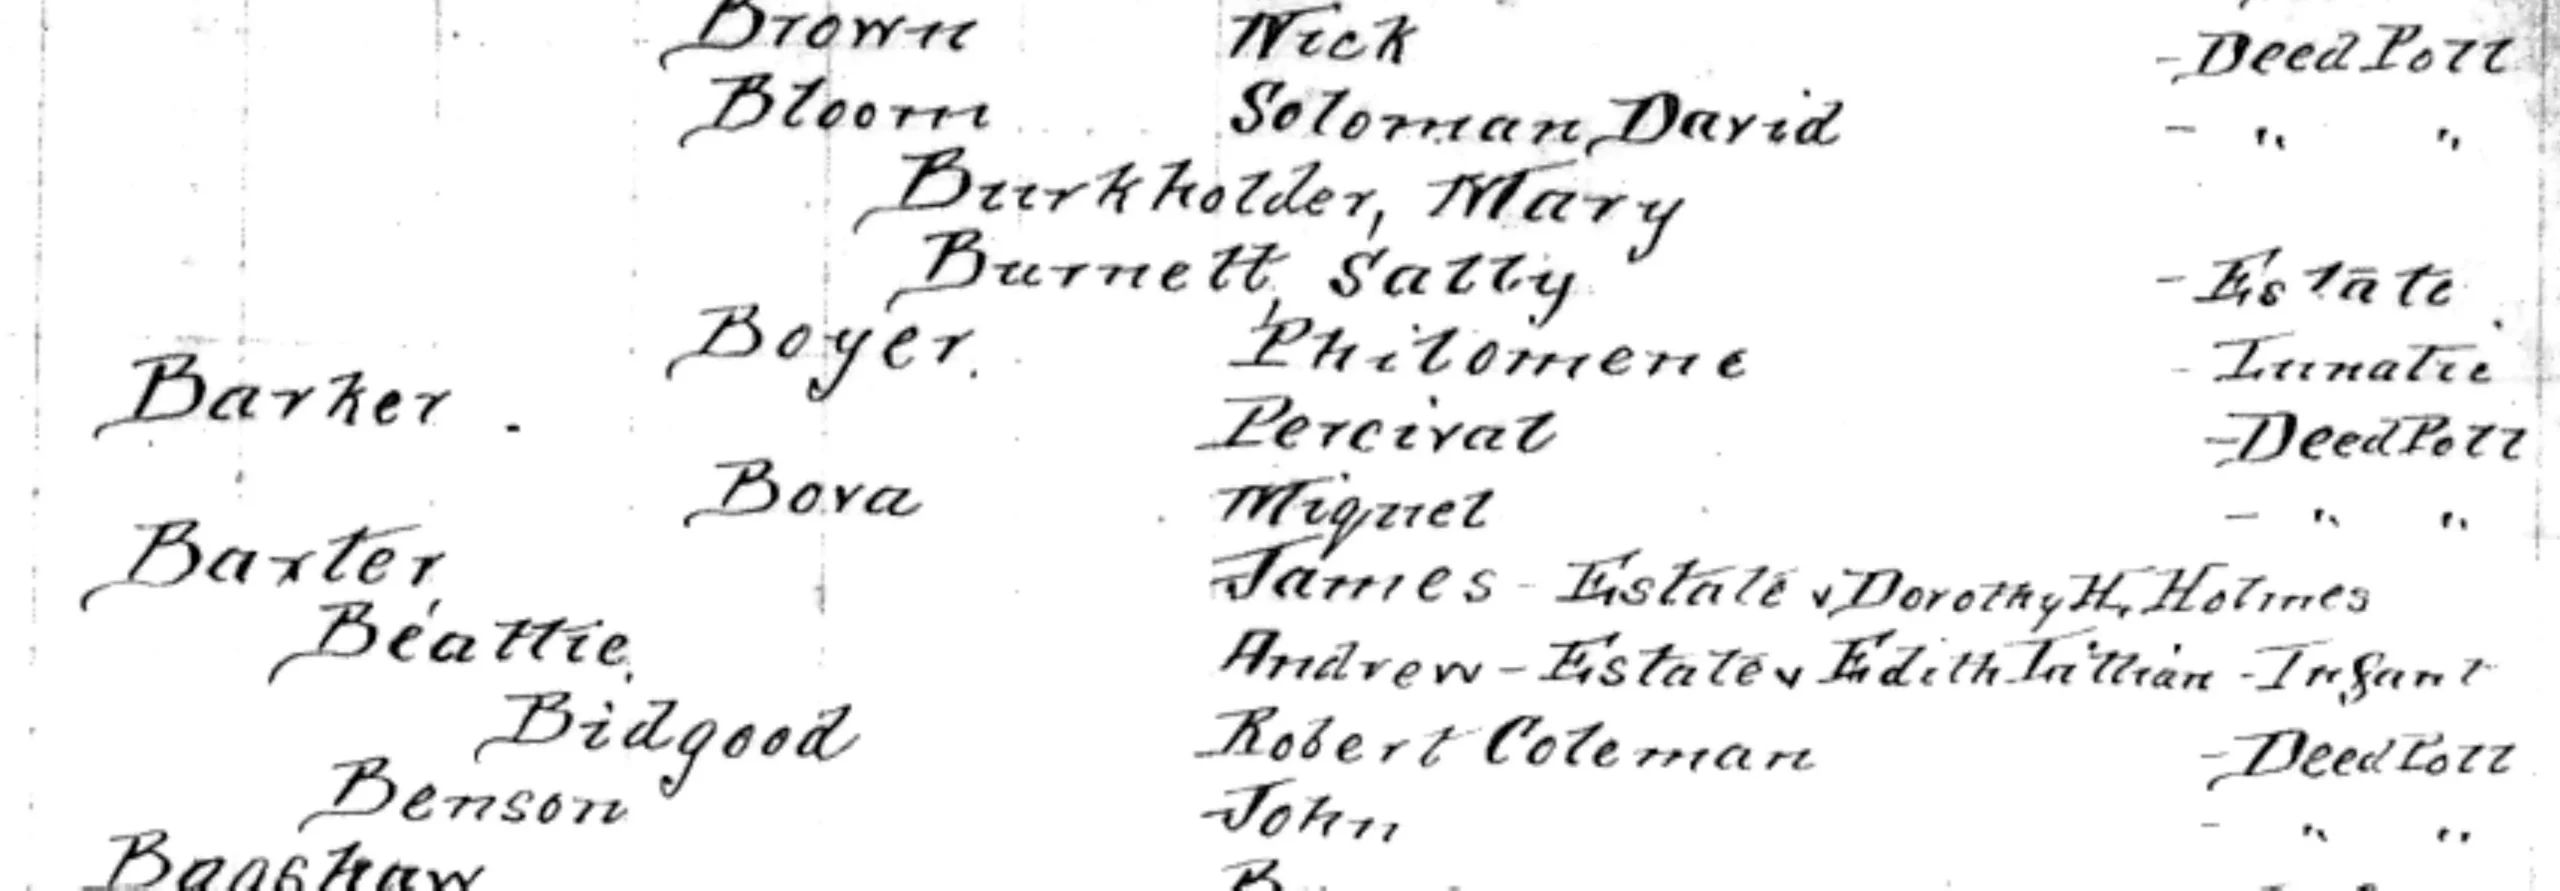 Brown Nick - Deed Poll
Bloom Soloman David - " "
Burkholder, Mary
Burnett, Sally - Estate
Boyer. Philomene - Lunatic
Barker. Percival - Deed Poll
Bova Miguel - " "
Baxter, James - Estate & Dorothy H. Holmes
Beattie. Andrew - Estate & Edith Lillian - Infant
Bidgood Robert Coleman - Deed Poll
Benson John - " "
Bagshaw